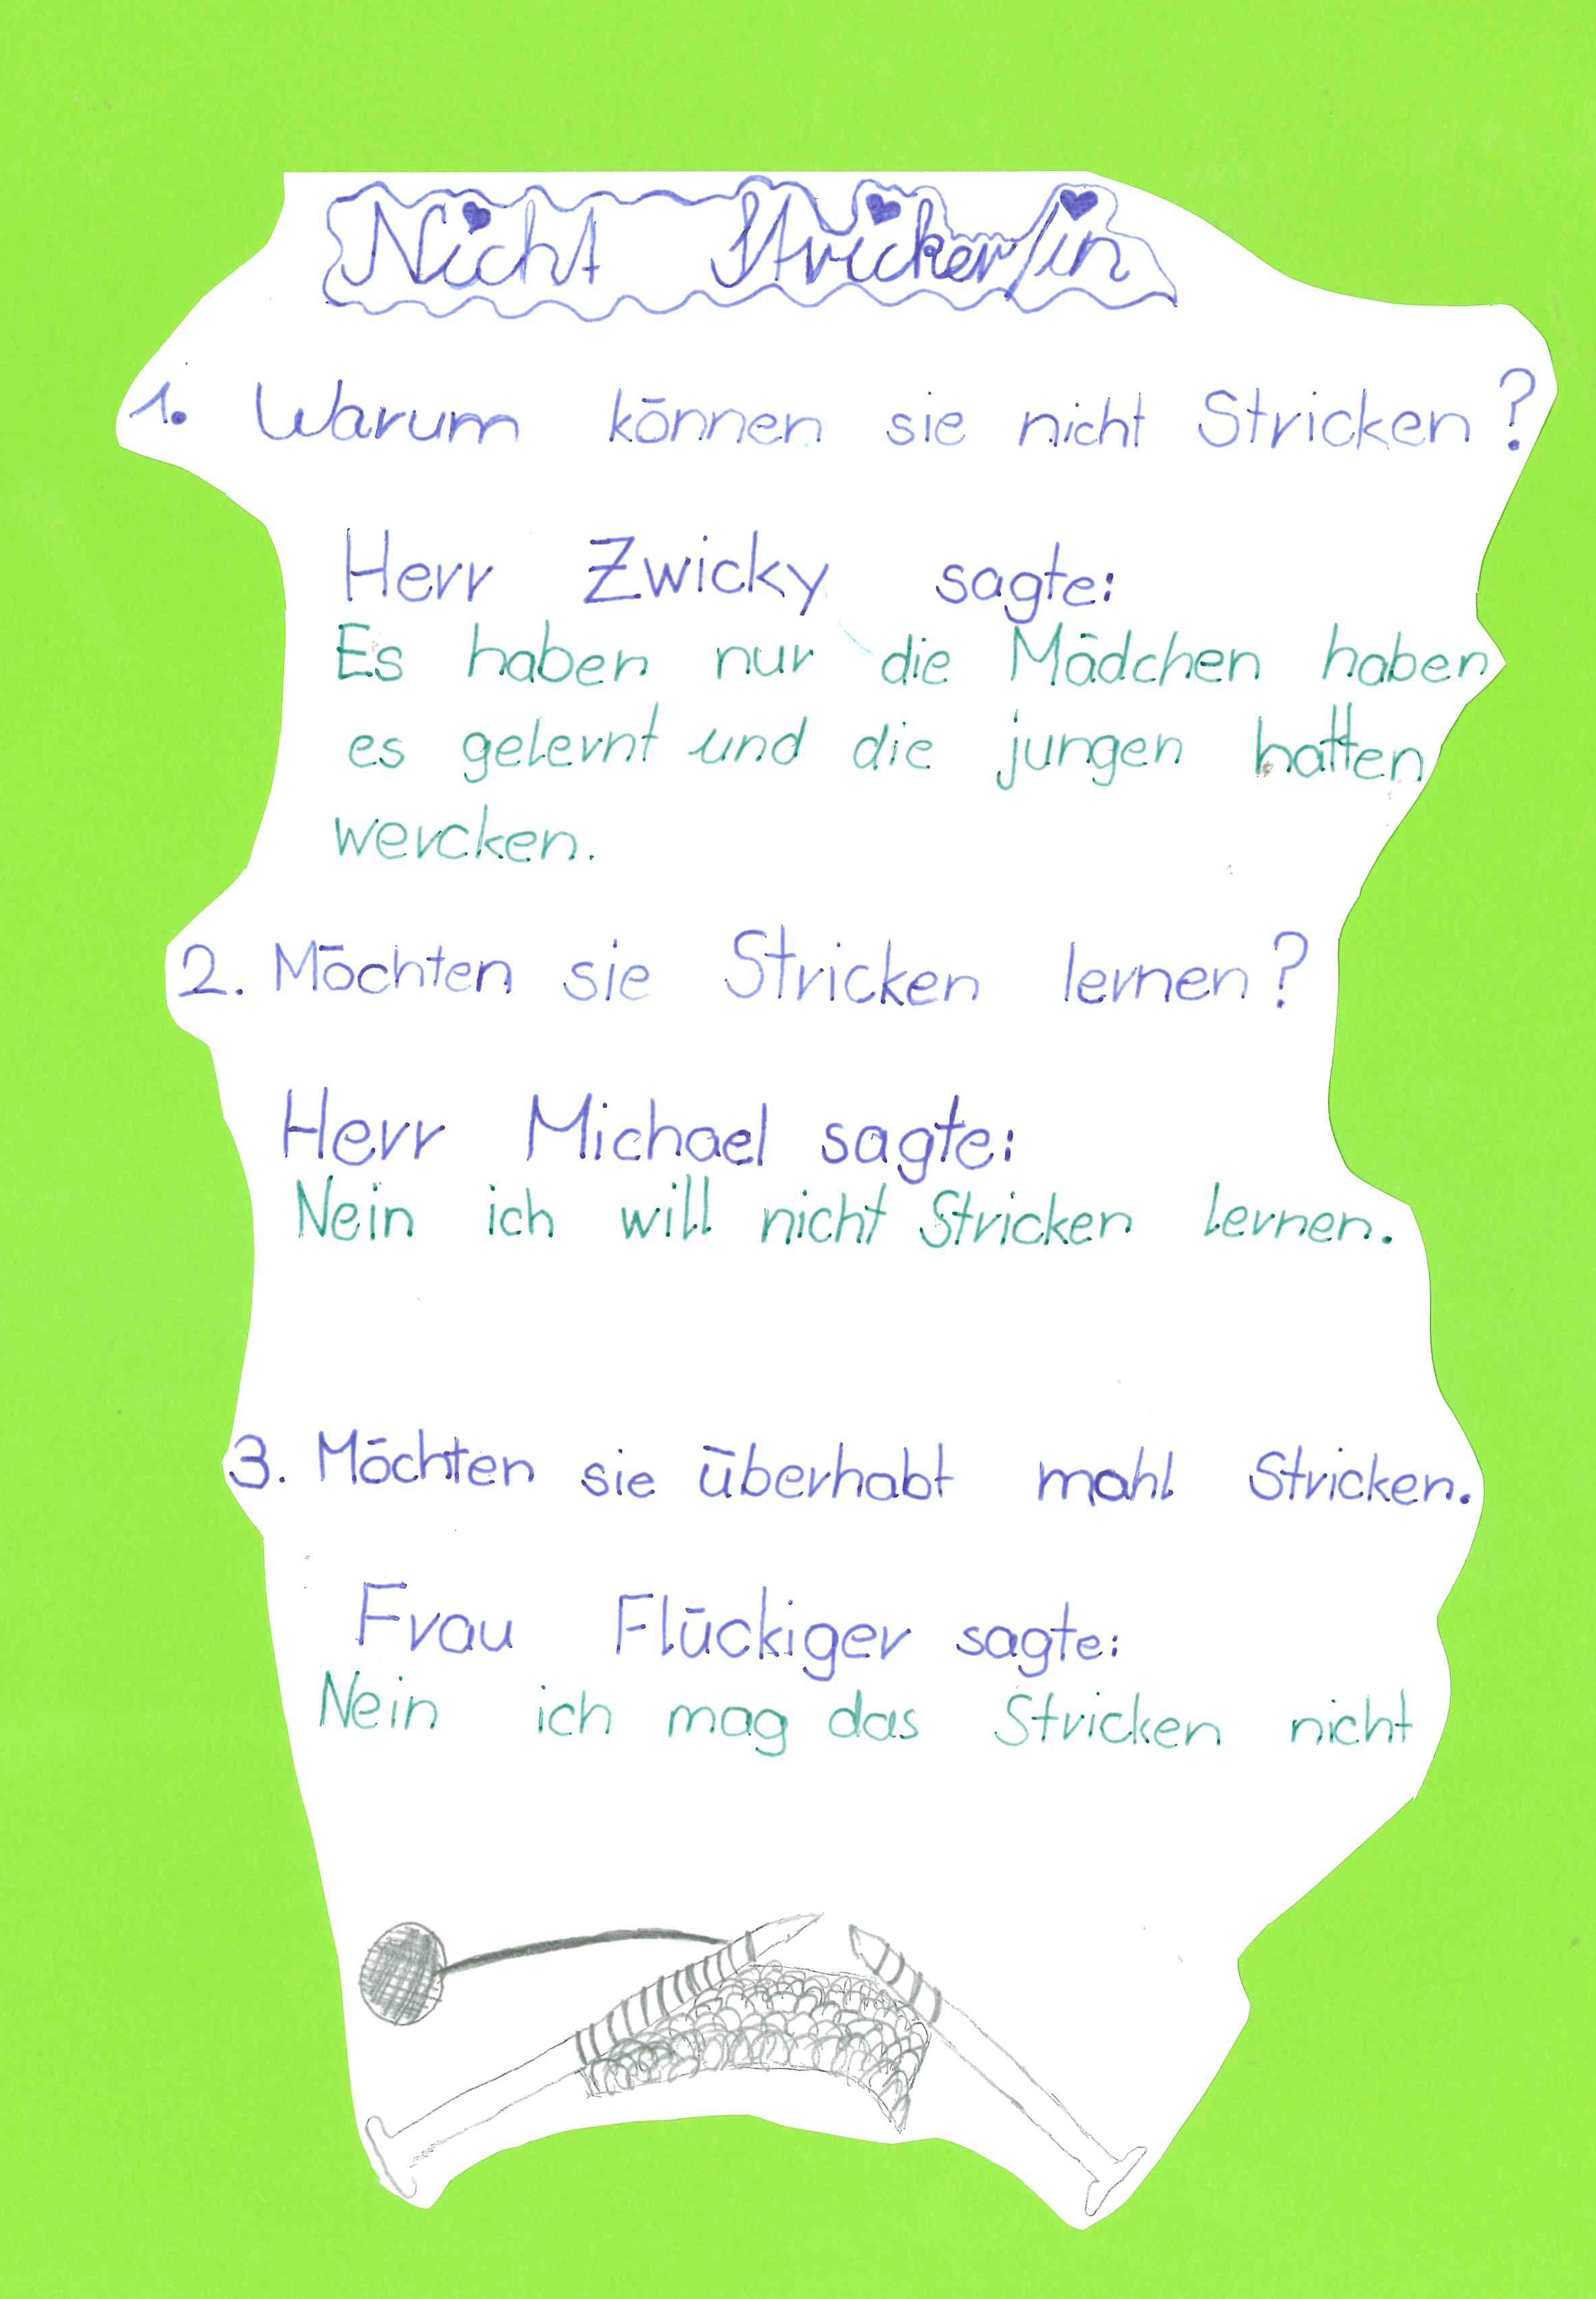 Nicht Stricker/in
1. Warum können sie nicht Stricken?
Herr Zwicky sagte:
Es haben nur die Mädchen haben
es gelernt und die jungen hatten
wercken.
2. Möchten sie Stricken lernen?
Herr Michael sagte:
Nein ich will nicht Stricken lernen.
3. Möchten sie überhabt mahl Stricken.
Frau Flückiger sagte:
Nein ich mag das Stricken nicht